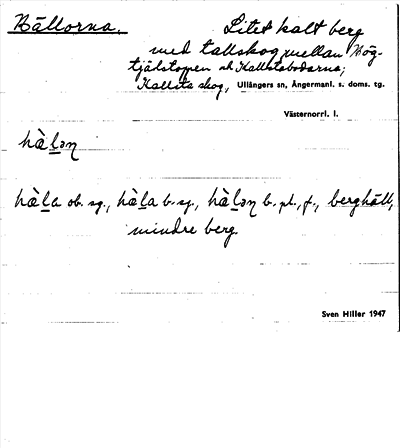 Hällorna. Litet kalt berg
med tallskog mellan Hög-
tjälstoppen och Kallstabodarna,
Kallsta skog, Ullångers sn, Ångermanl. s. doms. tg.
Västernorrl. l.
hàlan
hàla ob. sg., hàla b. sg., hàlan b. pl., f., berghäll,
mindre berg.
Sven Hiller 1947